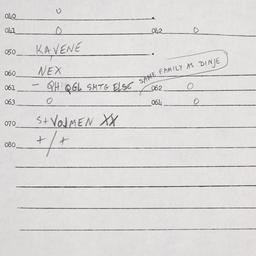 040 0
041 0 042 0
050 KAVENE
SAME FAMILY AS DINJE
060 NEX
061 - QH QGL SMTG ELSE 062 0
063 0 064 0
070 S+VOJMEN XX
080 +/+